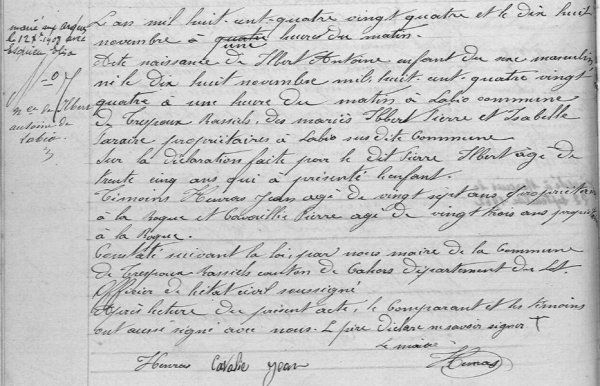 L'an mil huit-cent-quatre vingt quatre et le dix huit
novembre à quatre heures du matin.
une
Acte naissance de Ilbert Antoine enfant du sexe masculin
né le dix huit novembre mil, huit-cent-quatre vingt
quatre à une heure du matin à Labio commune
de Trespoux Rassiels, des mariés Ilbert Pierre et Isabelle
propriétaires à Labio susdite Commune
Sur la déclaration faite par le dit Pierre Ilbert âgé de
trente cinq ans qui a présenté l'enfant.
Témoins Henras Jean agé de vingt sept ans propriétaire
à la Roque et Pierre agé de vingt trois ans
à la Roque.
Constaté suivant la loi, par nous maire de la Commune
de Trespoux Rassiels canton de Cahors département du Lot.
Officier de l'état civil soussigné
Après lecture du présent acte, le Comparant et les témoins
ont aussi signé avec nous. Le père déclare ne savoir signer
Le maire
Henras Cavalié Jean Henras
marié aux
le 12 1909 avec
Nce de Ilbert
antoine de
Labio